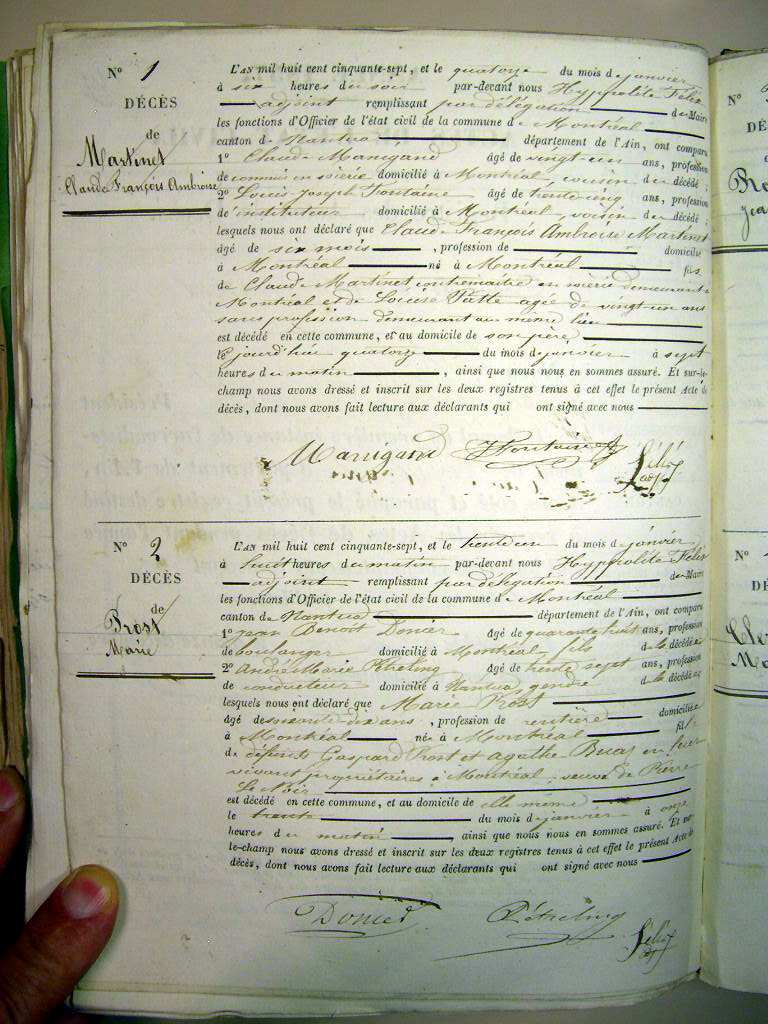 N° 1
DÉCÈS
de
Martinet
Claude François Ambroise
L'AN mil huit cent cinquante-sept, et le quatorze du mois de janvier
à six heures du soir par-devant nous Hyppolite Félix
adjoint remplissant par délégation du Maire
les fonctions d'Officier de l'état civil de la commune de Montréal
canton de Nantua département de l'Ain, ont comparu
1° Claude Manigand âgé de vingt un ans, profession
de commis en soierie domicilié à Montréal, cousin du décédé ;
2° Louis Joseph Fontaine âgé de trente cinq ans, profession
de instituteur domicilié à Montréal, voisin du décédé ;
lesquels nous ont déclaré que Claude François Ambroise Martinet
âgé de six mois , profession de domicilié
à Montréal né à Montréal fils
de Claude Martinet contremaitre en soierie demeurant à
Montréal et de Louise agée de vingt un ans
sans profession demeurant au même lieu
est décédé en cette commune, et au domicile de son père
le jourd'hui quatorze du mois de janvier à sept
heures du matin , ainsi que nous nous en sommes assuré. Et sur-le-
champ nous avons dressé et inscrit sur les deux registres tenus à cet effet le présent Acte de
décès, dont nous avons fait lecture aux déclarants qui ont signé avec nous
Manigand Fontaine Félix
adj
N° 2
DÉCÈS
de
Prost
Marie
L'AN mil huit cent cinquante-sept, et le trente un du mois de janvier
à huit heures du matin par-devant nous Hyppolite Félix
adjoint remplissant par délégation du Maire
les fonctions d'Officier de l'état civil de la commune de Montréal
canton de Nantua département de l'Ain, ont comparu
1° Jean Benoit Donier âgé de quarante huit ans, profession
de boulanger domicilié à Montréal fils de la décédée
2° André Marie âgé de trente sept ans, profession
de conducteur domicilié à Nantua, gendre de la décédée
lesquels nous ont déclaré que Marie Prost
âgé de soixante dix ans , profession de rentière domiciliée
à Montréal née à Montréal fille
de défunts Gaspard Prost et Agathe en leur
vivant propriétaires à Montréal ; veuve de Pierre
est décédé en cette commune, et au domicile de elle même
le trente du mois de janvier à onze
heures du matin , ainsi que nous nous en sommes assuré. Et sur-
le-champ nous avons dressé et inscrit sur les deux registres tenus à cet effet le présent Acte de
décès, dont nous avons fait lecture aux déclarants qui ont signé avec nous
Donier Félix
adj